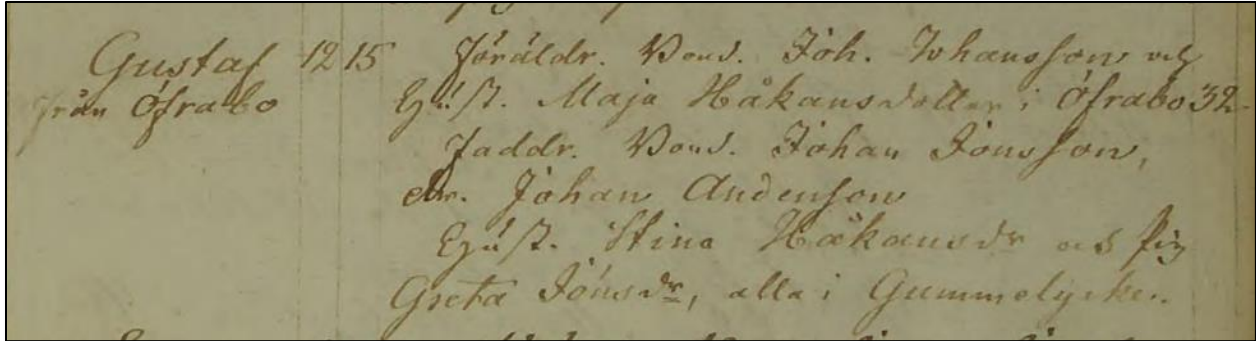 Gustaf 12 15 Föräldr. Bond. Joh. Johansson och
från Öfrabo Hust. Maja Håkansdotter i Öfrabo 32
Faddr. Bond. Johan Jönsson,
dr. Johan Andersson
Hust. Stina Håkansdr och Pig
Greta Jönsdr, alla i Gummelycke.